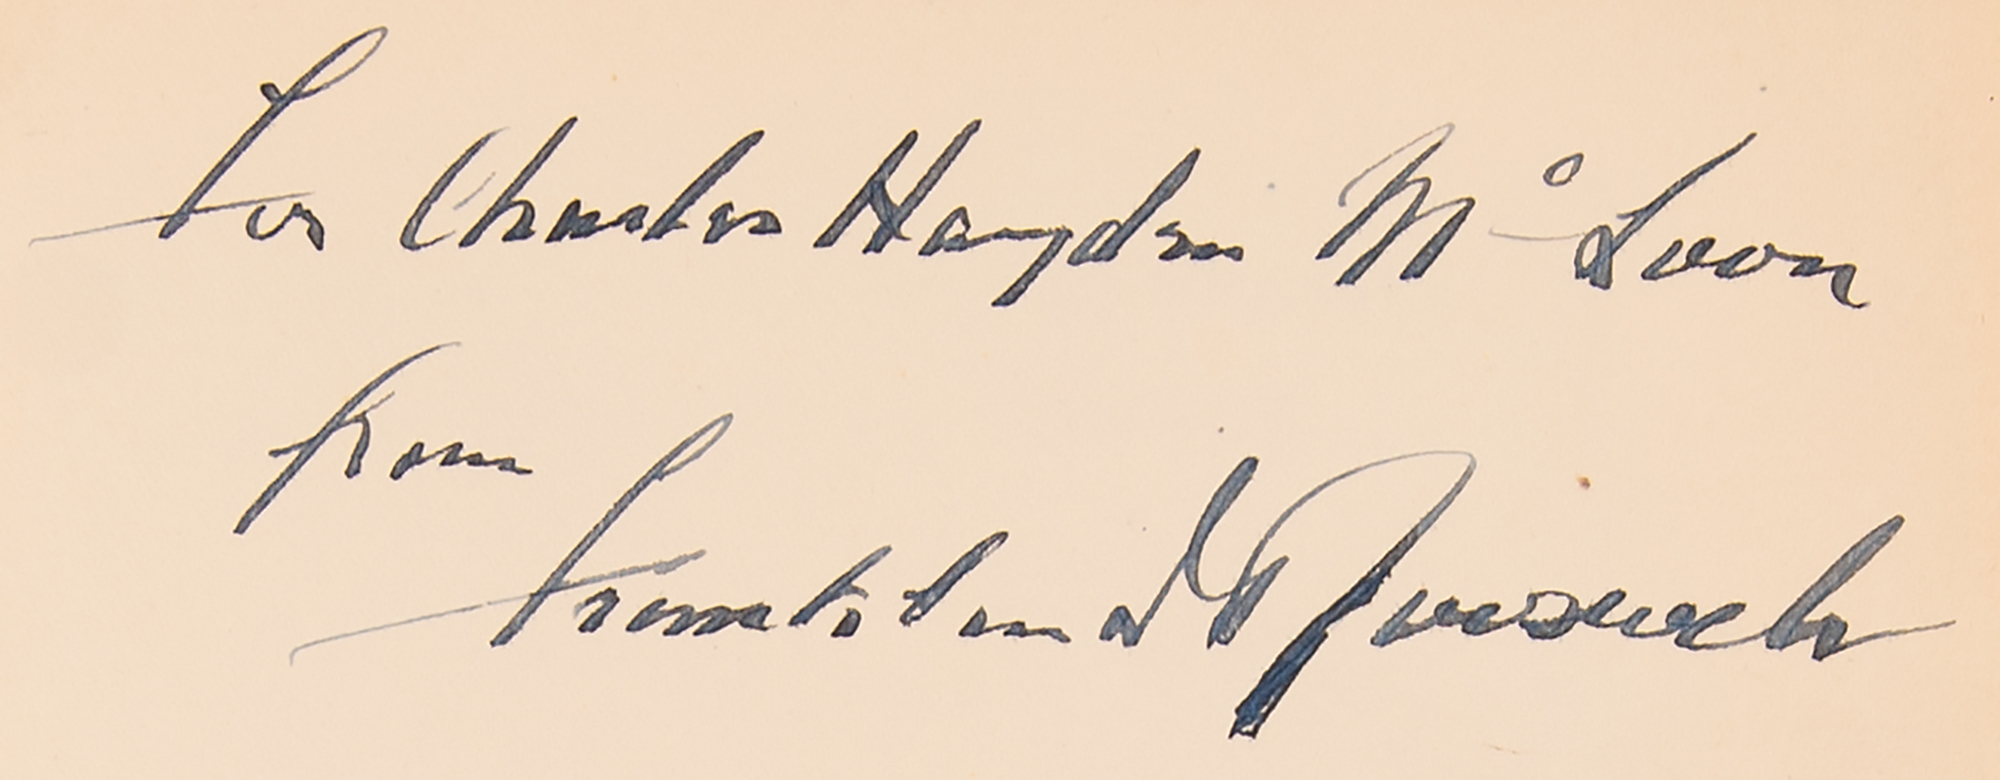 For Charles Hayden McLoon
from
Franklin D Roosevelt